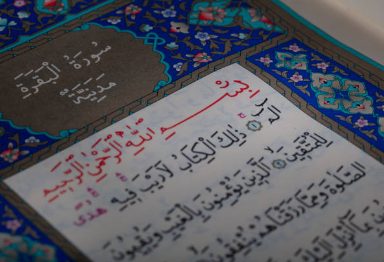 سُورَةُ الْبَقَرَةِ
مَدَنِيَّةٌ
بِسْمِ اللَّهِ الرَّحْمٰنِ الرَّحِيمِ
الٓمٓ ۝ ذٰلِكَ الْكِتَابُ لَا رَيْبَ فِيهِ هُدًى
لِلْمُتَّقِينَ ۝ الَّذِينَ يُؤْمِنُونَ بِالْغَيْبِ وَيُقِيمُونَ
الصَّلٰوةَ وَمِمَّا رَزَقْنَاهُمْ يُنْفِقُونَ
بِمَا أُنْزِلَ